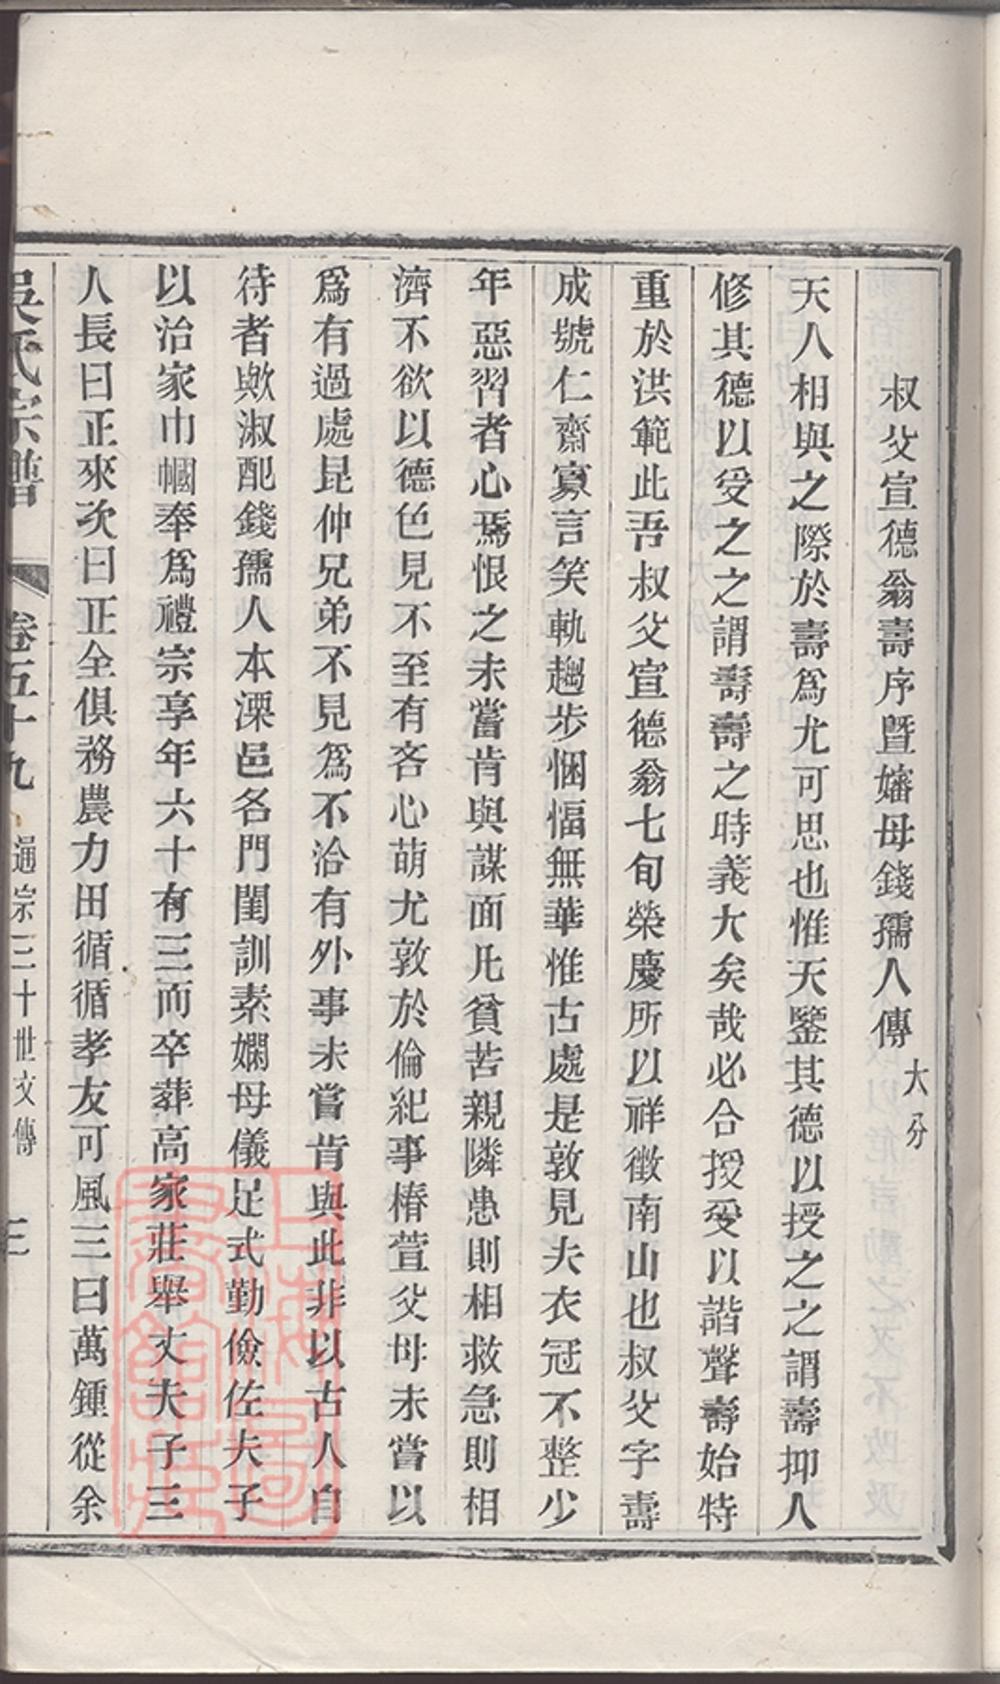 叔父宣德翁壽序暨嬸母錢孺人傳 大分
天人相與之際於壽爲尤可思也惟天鑒其德以授之之謂壽抑人
修其德以受之之謂壽壽之時義大矣哉必合授受以諧聲壽始特
重於洪範此吾叔父宣德翁七旬榮慶所以祥徵南山也叔父字壽
成號仁齋寡言笑軌趨步悃愊無華惟古處是敦見夫衣冠不整少
年惡習者心焉恨之未嘗肯與謀面凡貧苦親隣患則相救急則相
濟不欲以德色見不至有吝心萌尤敦於倫紀事椿萱父母未嘗以
爲有過處昆仲兄弟不見爲不洽有外事未嘗肯與此非以古人自
待者歟淑配錢孺人本溧邑名門閨訓素嫻母儀足式勤儉佐夫子
以治家巾幗奉爲禮宗享年六十有三而卒葬高家莊舉丈夫子三
人長曰正來次曰正全俱務農力田循循孝友可風三曰萬鍾從余
吳氏宗譜 卷五十九 通宗三十世文傳 三
上海圖書館藏